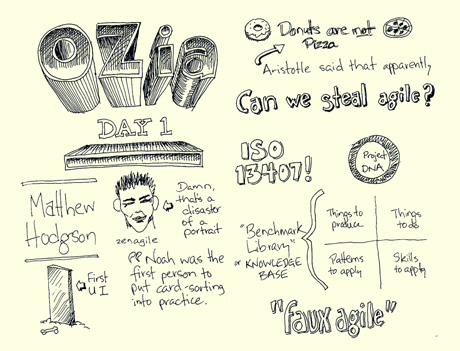 OZia
DAY 1
Matthew
Hodgson
zenagile
Damn,
that's a
disaster
of a
portrait
First
UI
Noah was the
first person to
put card-sorting
into practice.
Donuts are not
Pizza
Aristotle said that apparently
Can we steal agile?
ISO
13407!
Project
DNA
"Benchmark
Library"
or KNOWLEDGE
BASE
Things to
produce
Things
to do
Patterns
to apply
Skills
to apply
"faux agile"